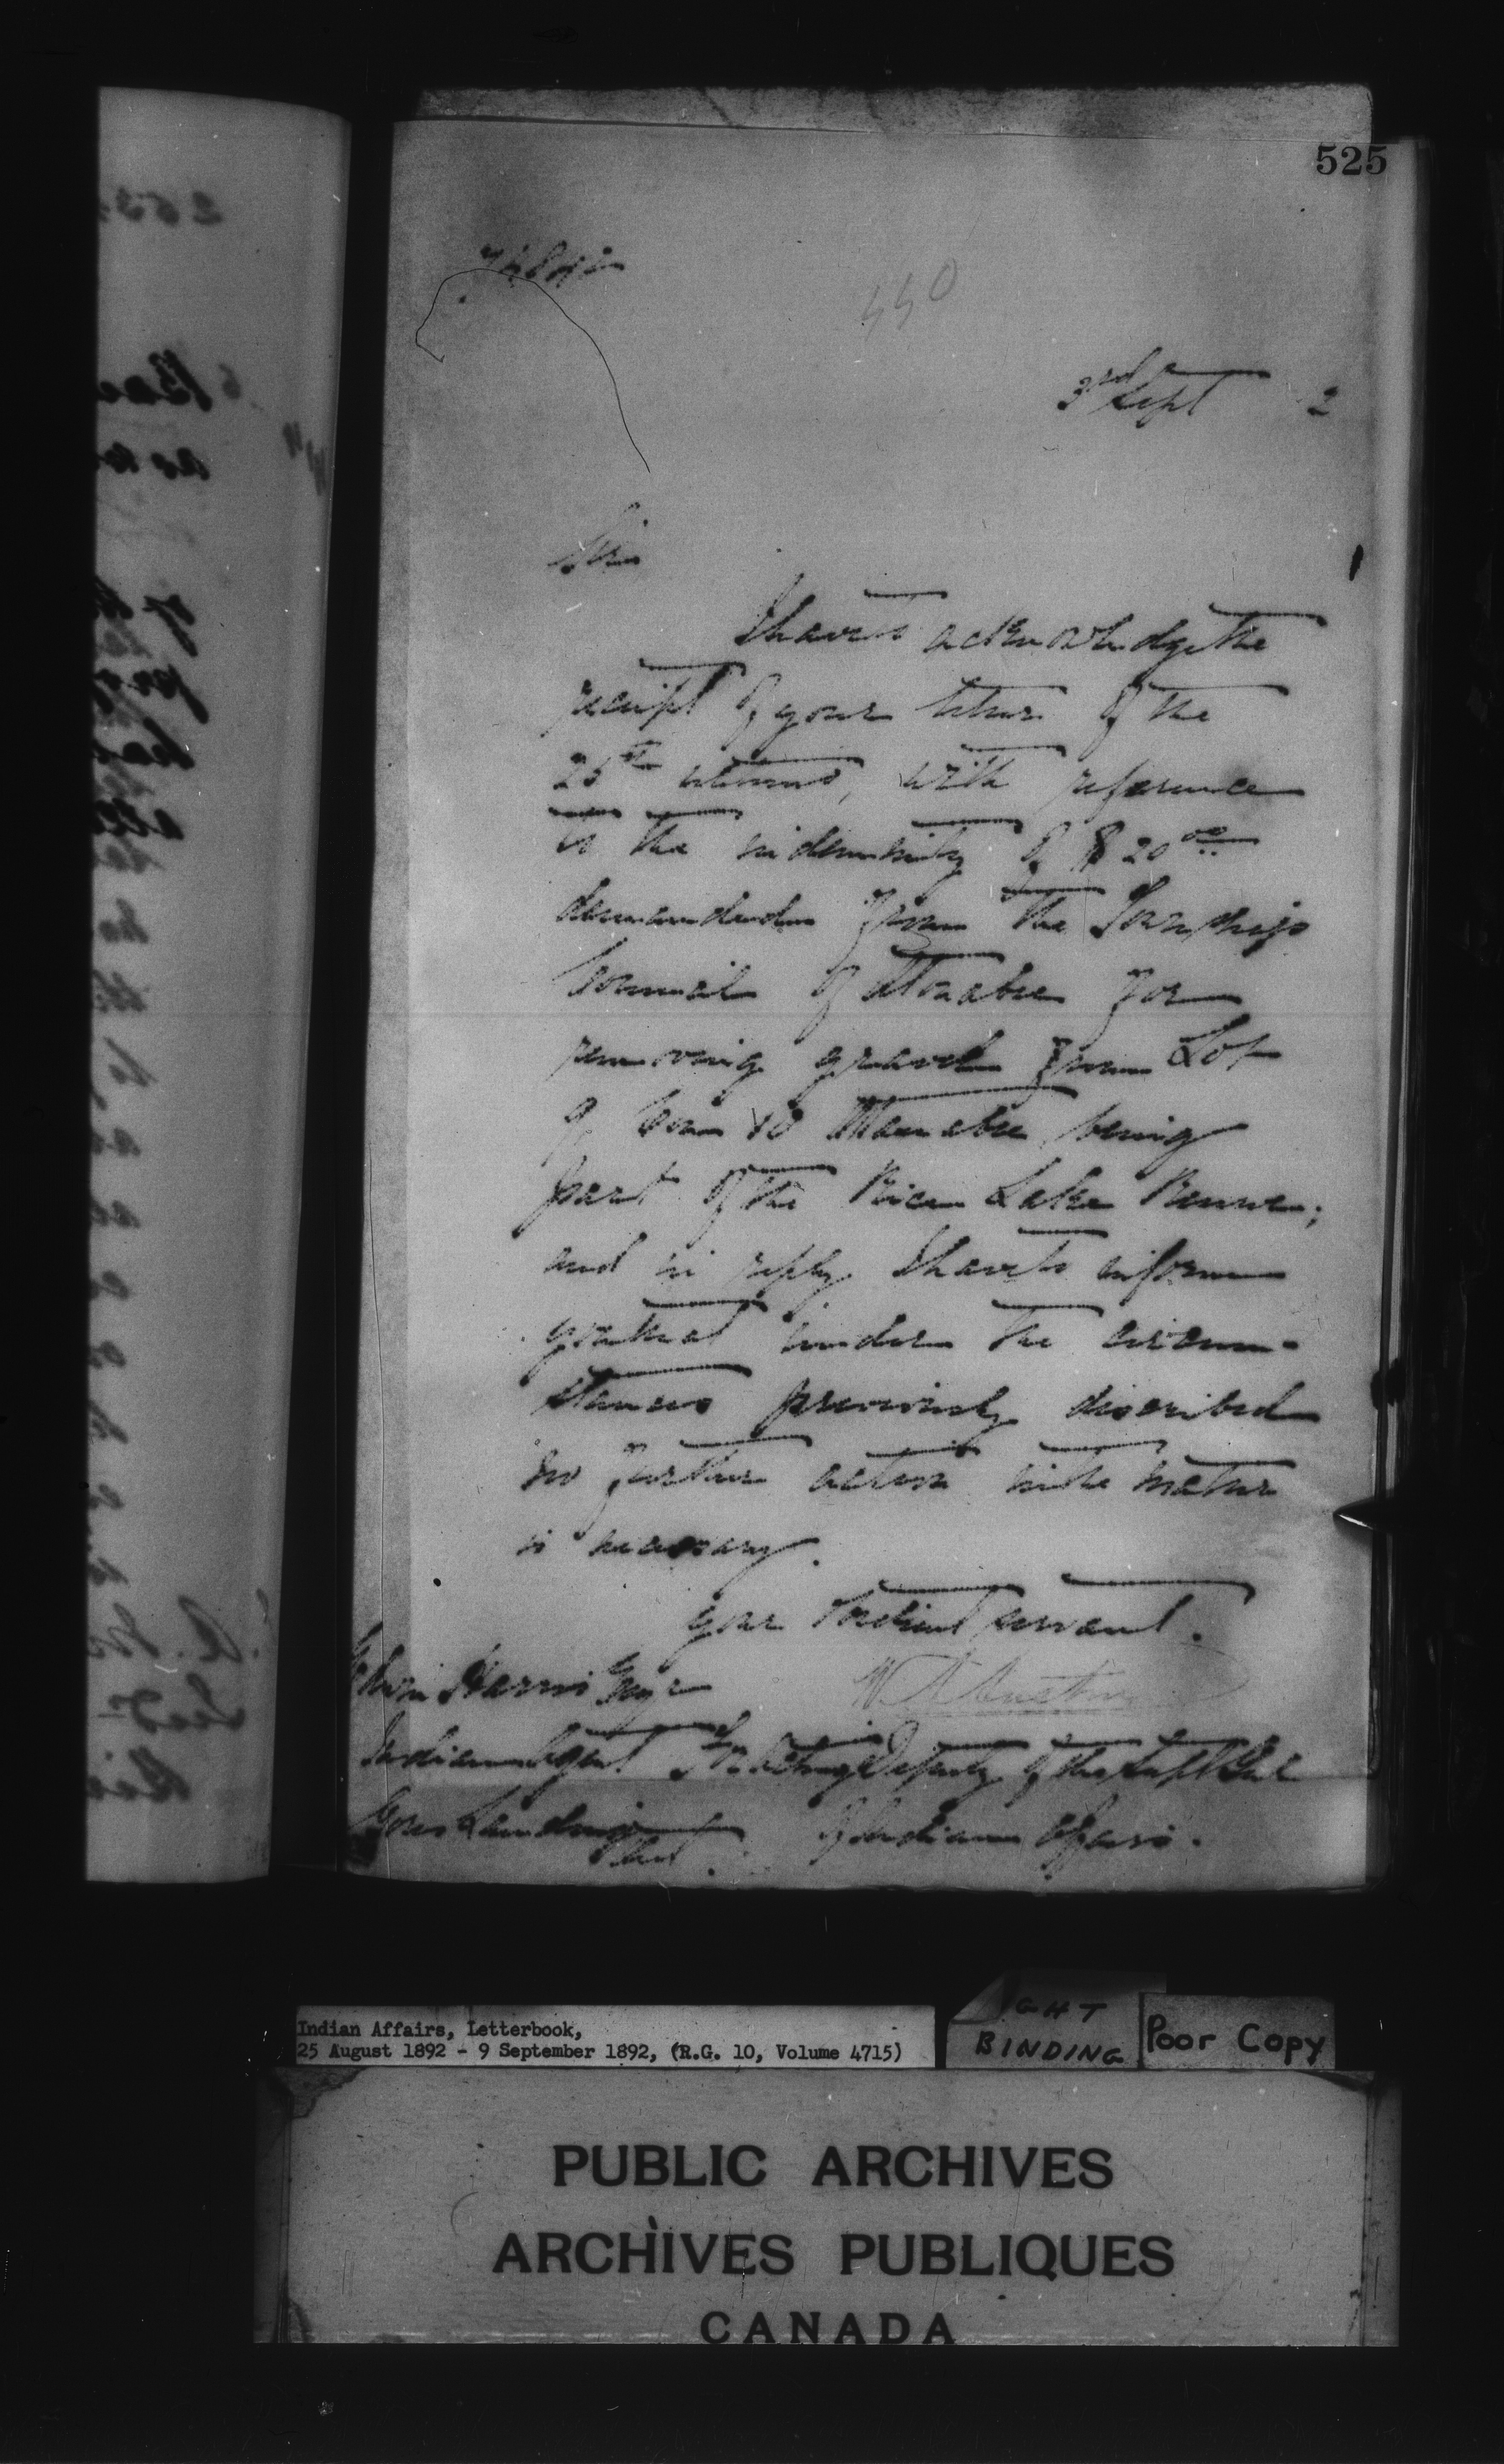 525
440
3rd Sept 2
Sir
I have to acknowledge the
receipt of your letter of the
25th ultimo, with reference
to the indemnity of $20.00
demanded from the Township
Council of Otonabee for
removing gravel from Lot
9 Con 10 Otonabee being
part of the Rice Lake Reserve;
and in reply I have to inform
you that under the circum-
stances previously described
no further action in the matter
is necessary.
Your obedient servant.
Harris Esqr
Indian Agent
For Acting Deputy of the Supt Genl
Gores Landing
Ont.
of Indian Affairs.
Indian Affairs, Letterbook,
25 August 1892 - 9 September 1892, (R.G. 10, Volume 4715)
GHT
BINDING
Poor Copy
PUBLIC ARCHIVES
ARCHIVES PUBLIQUES
CANADA